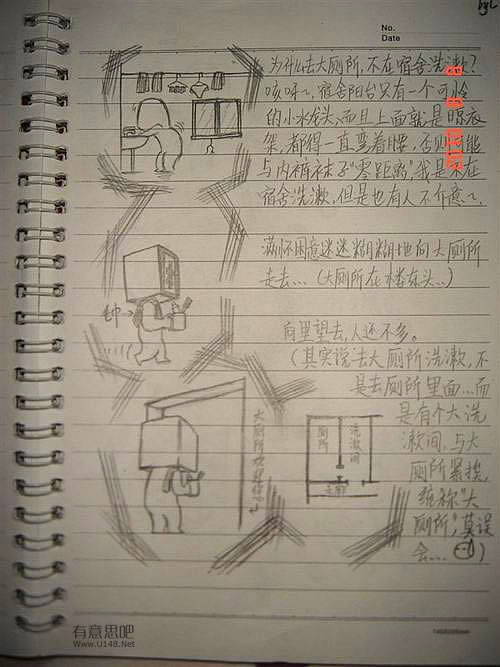 byL
No.
Date
为什么去大厕所，不在宿舍洗漱？
咳呀～，宿舍阳台只有一个可怜
的小水龙头、而且上面就是晾衣
架，都得一直弯着腰，否则可能
与内裤袜子“零距离”，我是不在
宿舍洗漱，但是也有人不介意～.
满怀困意迷迷糊糊地向大厕所
走去…（大厕所在楼东头…）
向里望去，人还不多。
（其实说去大厕所洗漱，不
是去厕所里面…而
是有个大洗
漱间，与大
厕所紧挨，
统称“大
厕所”，莫误
会…）
大厕所欢迎您～
厕所
洗漱间
走廊
有意思吧
www.U148.Net